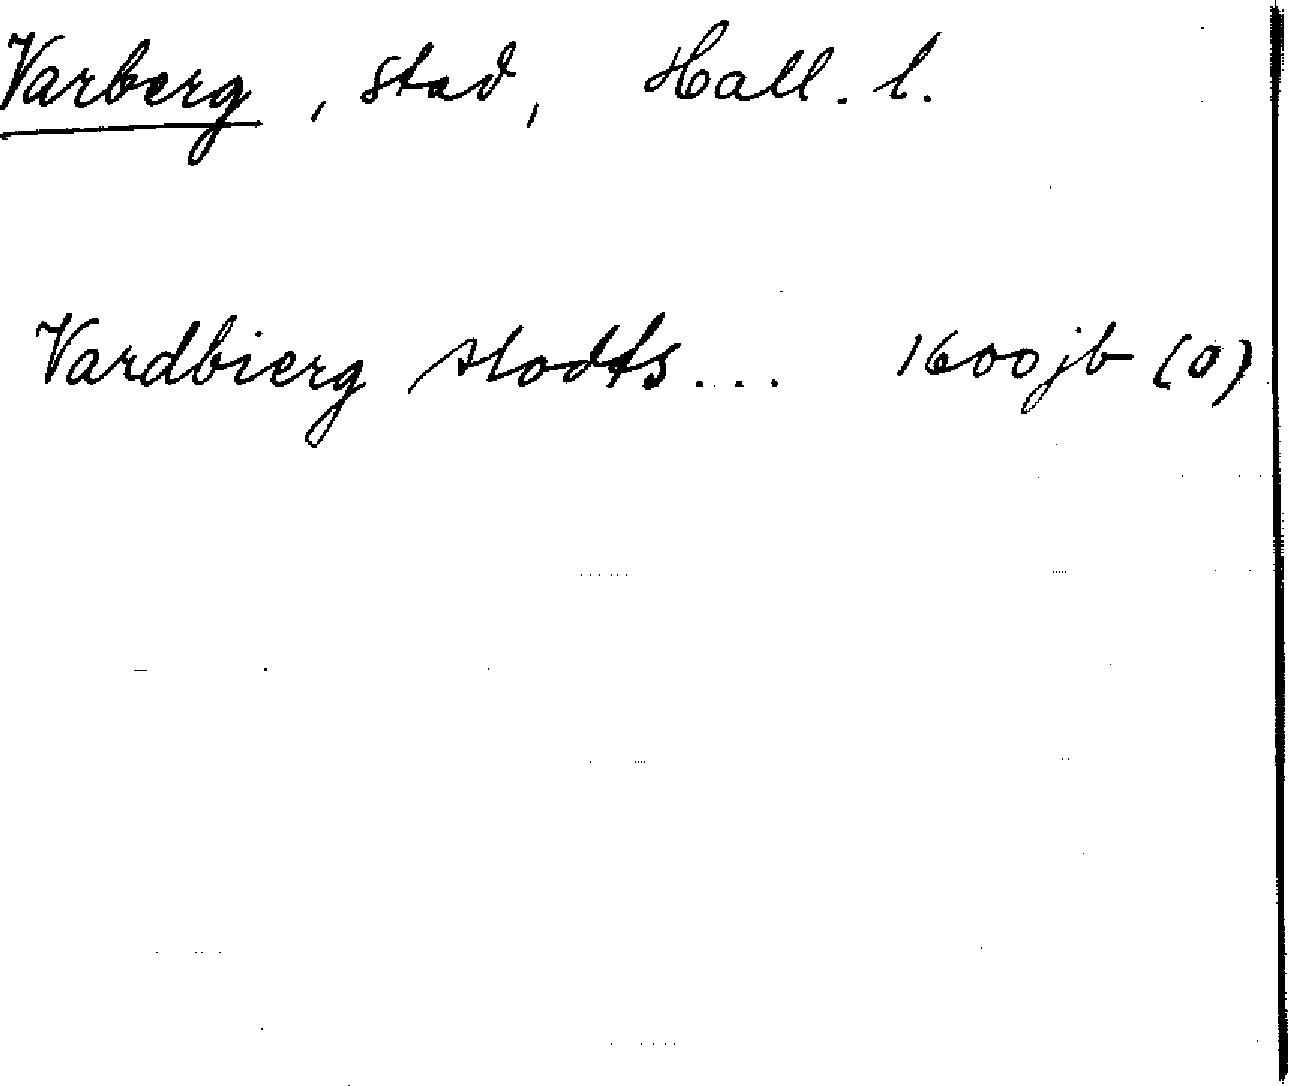 Varberg, stad, Hall. l.
Vardbierg stodts... 1600 jb (0)